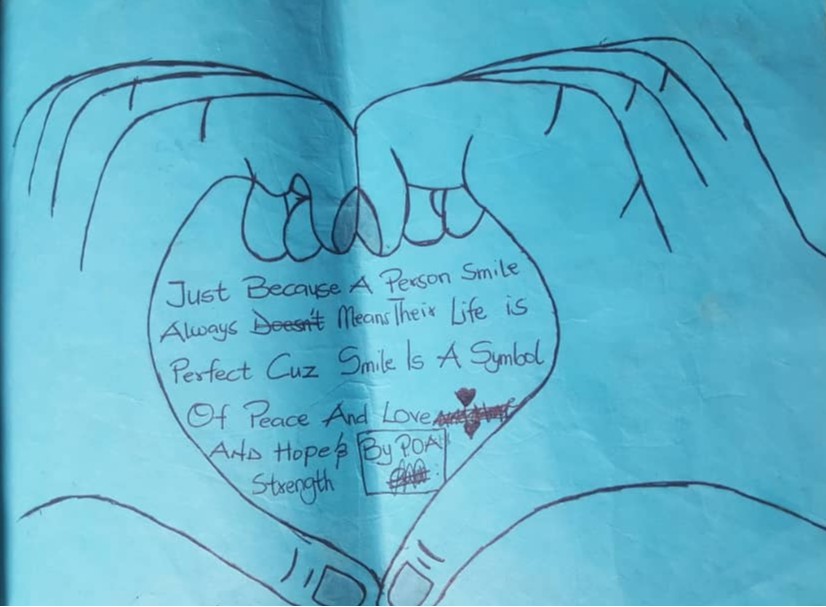 Just Because A Person Smile
Always Doesn't Means Their Life is
Perfect Cuz Smile Is A Symbol
Of Peace And Love
And Hope &
Strength
By POA